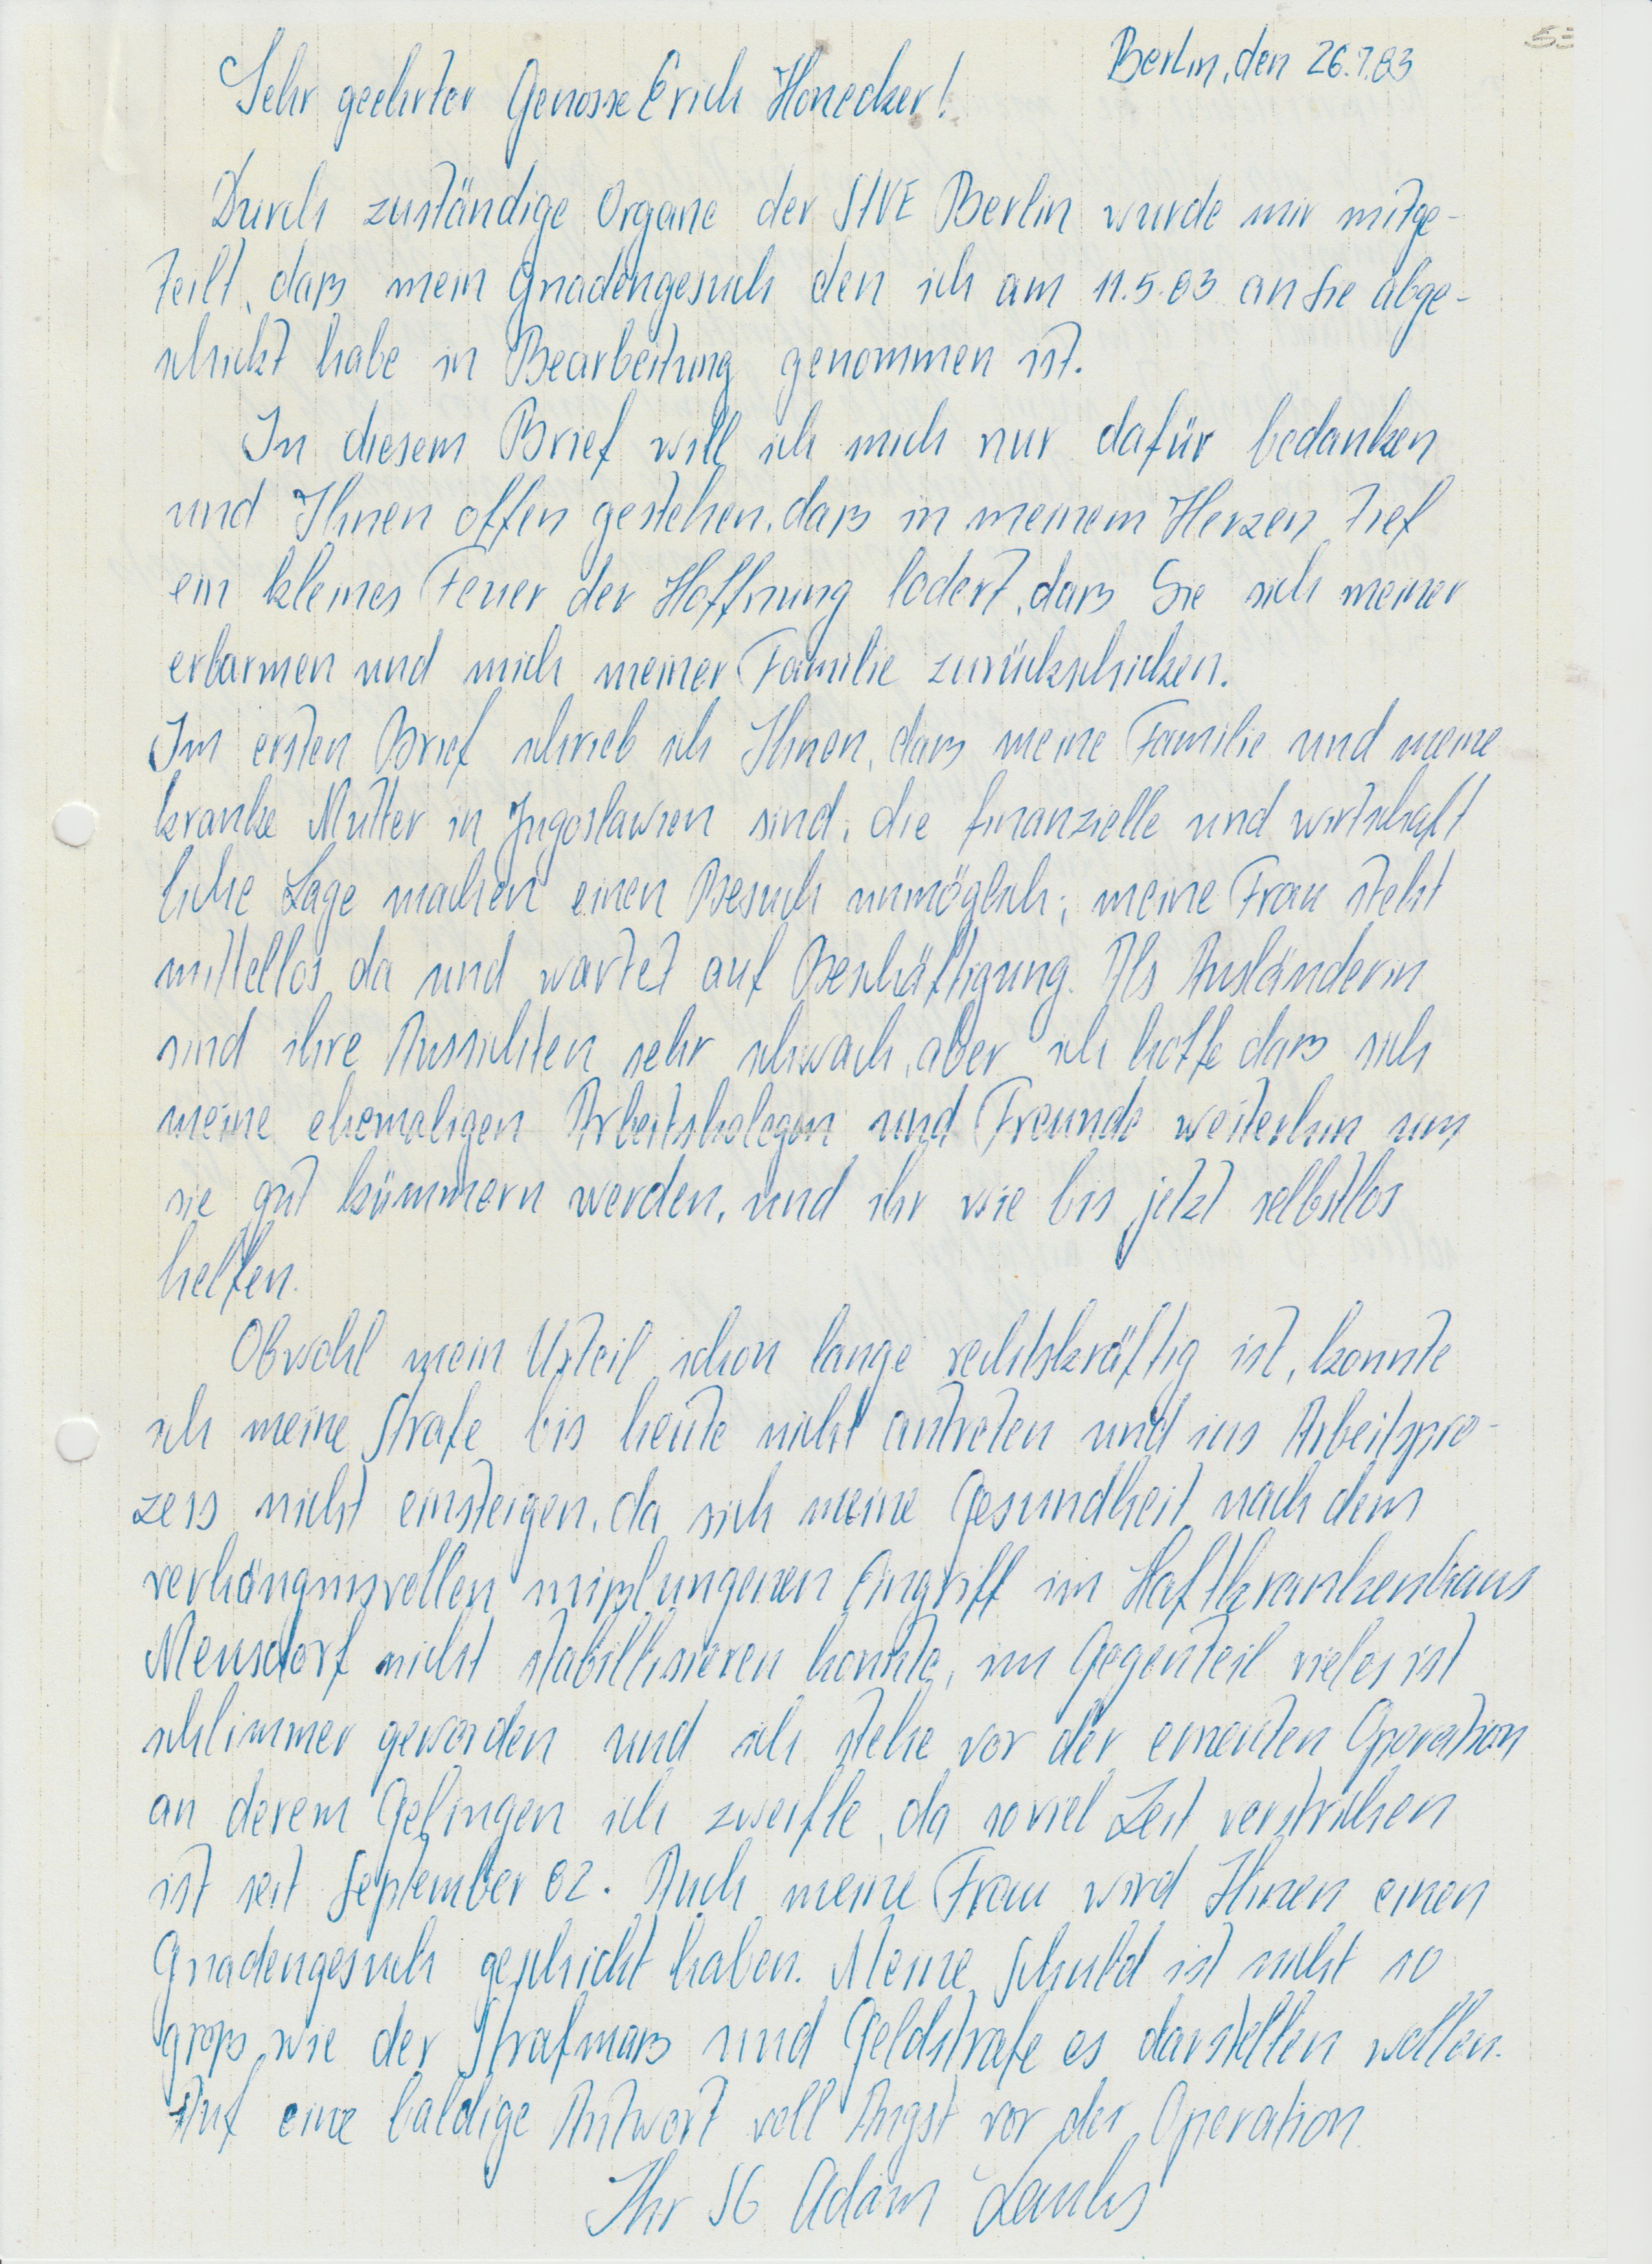 53
Berlin, den 26.7.83
Sehr geehrter Genosse Erich Honecker!
Durch zuständige Organe der StVE Berlin wurde mir mitge-
teilt, daß mein Gnadengesuch den ich am 11.5.83 an Sie abge-
schickt habe in Bearbeitung genommen ist.
In diesem Brief will ich mich nur dafür bedanken
und Ihnen offen gestehen, daß in meinem Herzen tief
ein kleines Feuer der Hoffnung lodert, daß Sie sich meiner
erbarmen und mich meiner Familie zurückschicken.
Im ersten Brief schrieb ich Ihnen, daß meine Familie und meine
kranke Mutter in Jugoslawien sind, die finanzielle und wirtschaft
liche Lage machen einen Besuch unmöglich; meine Frau steht
mittellos da und wartet auf Beschäftigung. Als Ausländerin
sind ihre Aussichten sehr schwach, aber ich hoffe daß sich
meine ehemaligen Arbeitskolegen und Freunde weiterhin um
sie gut kümmern werden, und ihr wie bis jetzt selbstlos
helfen.
Obwohl mein Urteil schon lange rechtskräftig ist, konnte
ich meine Strafe bis heute nicht antreten und ins Arbeitspro-
zess nicht einsteigen, da sich meine Gesundheit nach dem
verhängnisvollen mißlungenen Eingriff im Haftkrankenhaus
Meusdorf nicht stabillisieren konnte, im Gegenteil vieles ist
schlimmer geworden und ich stehe vor der erneuten Operation
an derem Gelingen ich zweifle, da soviel Zeit verstrichen
ist seit September 82. Auch meine Frau wird Ihnen einen
Gnadengesuch geschickt haben. Meine Schuld ist nicht so
groß wie der Strafmaß und Geldstrafe es darstellen wollen.
Auf eine baldige Antwort voll Angst vor der Operation
Ihr SG Adam Lauks